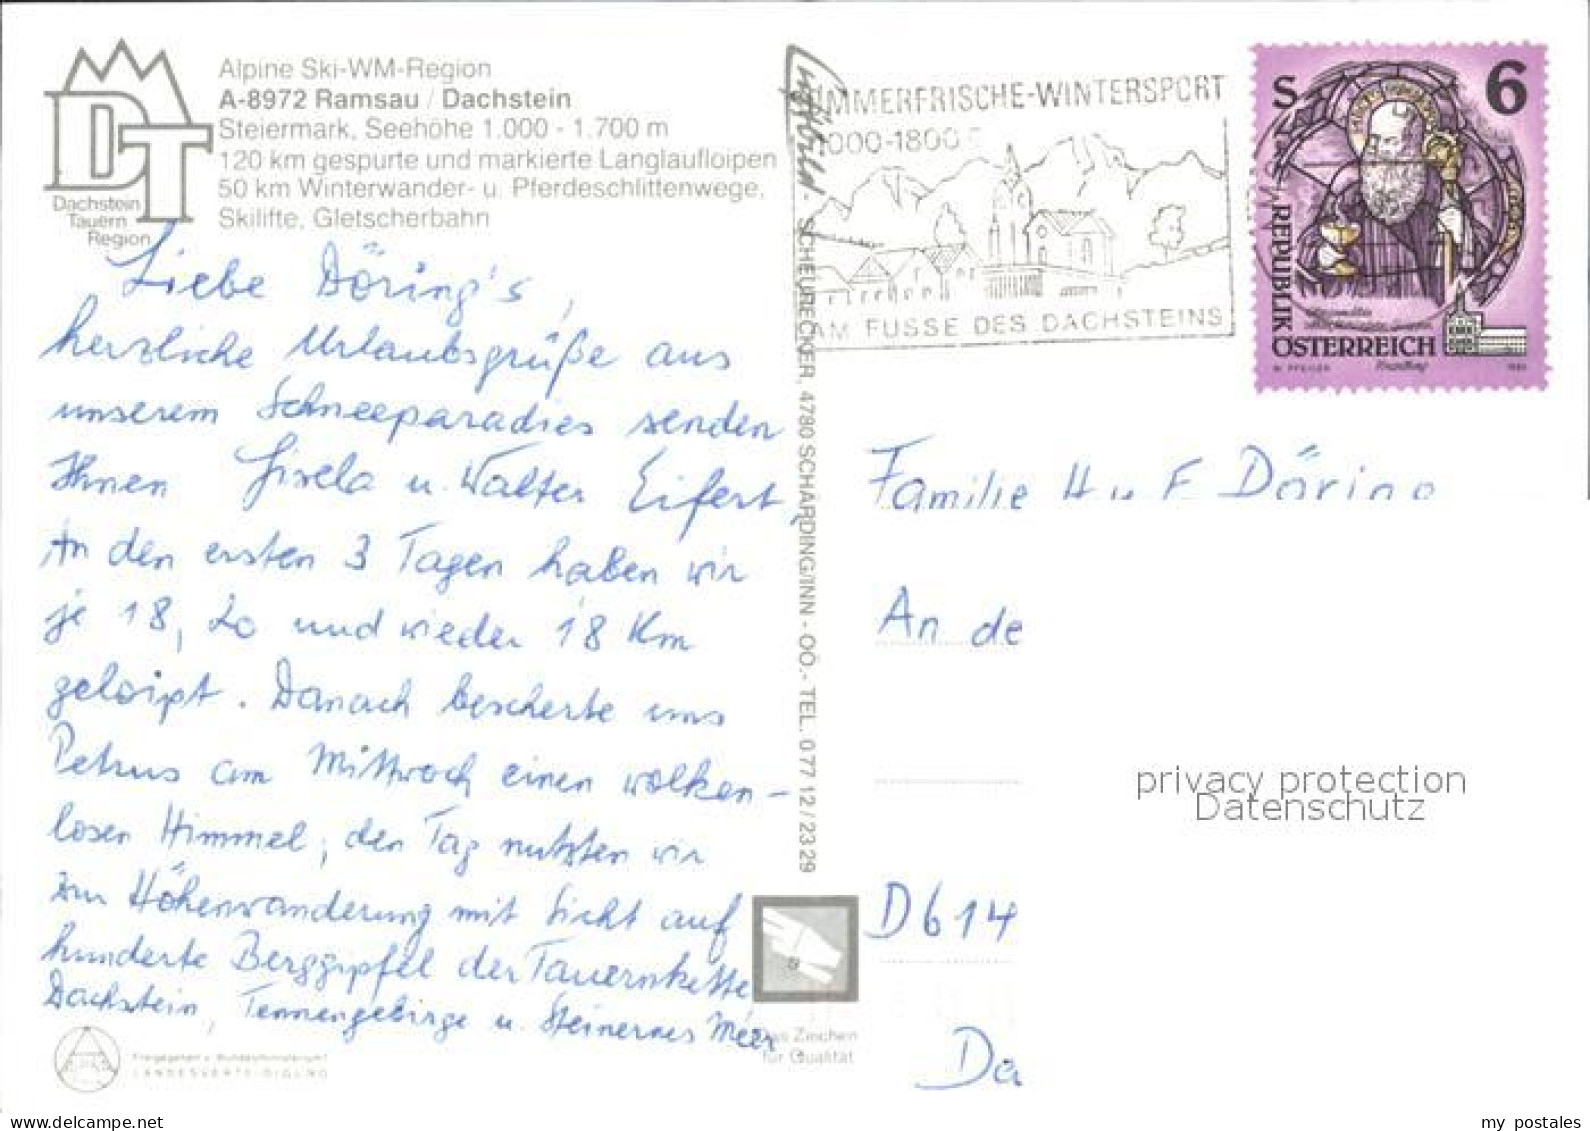 Alpine Ski-WM-Region
A-8972 Ramsau / Dachstein
Steiermark, Seehöhe 1.000 - 1.700 m
120 km gespurte und markierte Langlaufloipen
50 km Winterwander- u. Pferdeschlittenwege,
Skilifte, Gletscherbahn
DT
Dachstein
Tauern
Region
Liebe Döring's,
herzliche Urlaubsgrüße aus
unserem Schneeparadies senden
Ihnen Gisela u. Walter Eifert,
An den ersten 3 Tagen haben wir
je 18, 20 und wieder 18 Km
geloipt. Danach bescherte uns
Petrus am Mittwoch einen wolken-
losen Himmel, den Tag nutzten wir
zur Höhenwanderung mit Sicht auf
hunderte Berggipfel der Tauernkette
Dachstein, Tennengebirge u. Steinernes Meer
Freigegeben v. Bundesministerium f.
LANDESVERTEIDIGUNG
SCHEURECKER, 4780 SCHÄRDING/INN - OÖ.- TEL. 0 77 12 / 23 29
Das Zeichen
für Qualität
MMERFRISCHE-WINTERSPORT
000-1800
AM FUSSE DES DACHSTEINS
S 6
REPUBLIK
ÖSTERREICH
Familie H u F Döring
An de
D 614
Da
privacy protection
Datenschutz
my postales